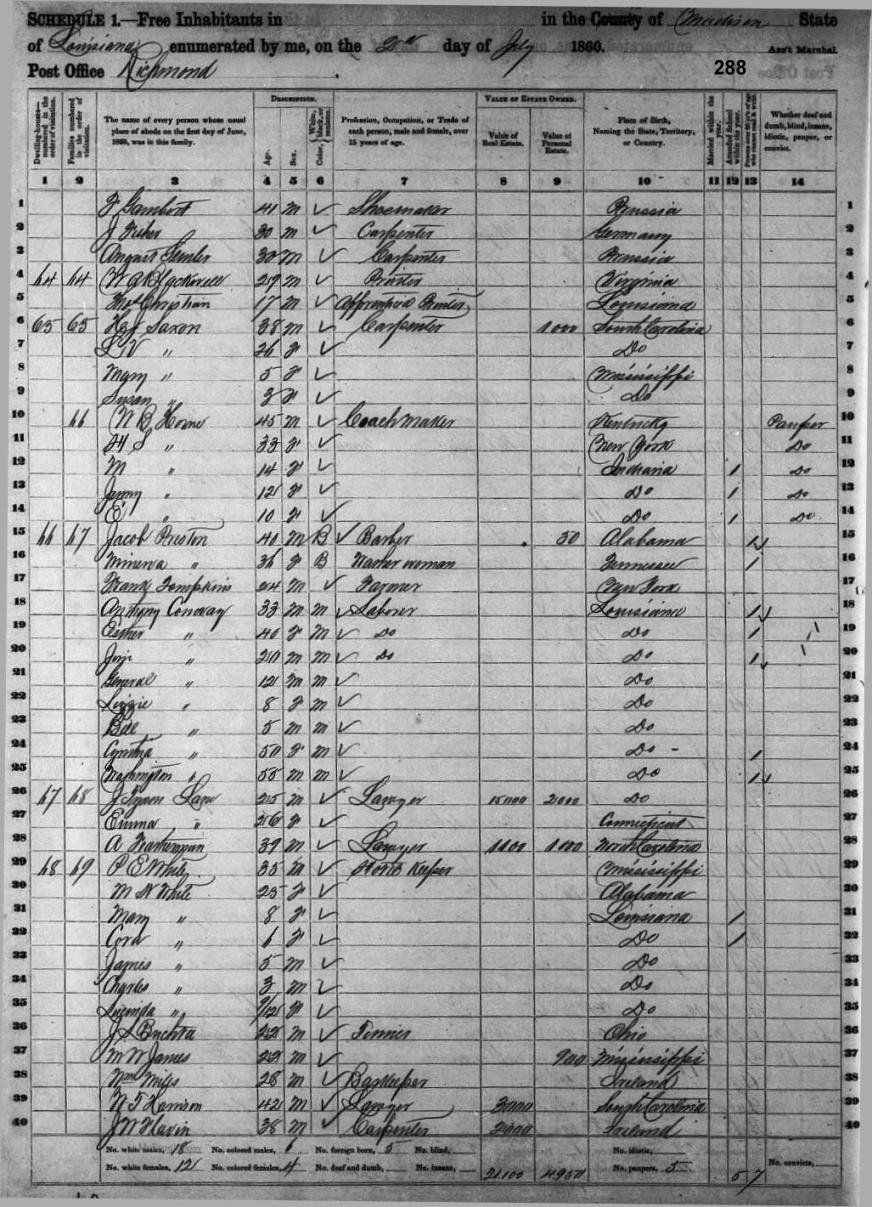 SCHEDULE 1.—Free Inhabitants in in the County of Madison State
of Louisiana enumerated by me, on the 2nd day of July 1860. Ass't Marshal.
Post Office Richmond 288
DESCRIPTION. VALUE OF ESTATE OWNED.
Dwelling-houses—numbered in the order of visitation. Families numbered in the order of visitation. The name of every person whose usual place of abode on the first day of June, 1860, was in this family. Age. Sex. Color, White, black, or mulatto. Profession, Occupation, or Trade of each person, male and female, over 15 years of age. Value of Real Estate. Value of Personal Estate. Place of Birth, Naming the State, Territory, or Country. Married within the year. Attended School within the year. Whether deaf and dumb, blind, insane, idiotic, pauper, or convict.
1 2 3 4 5 6 7 8 9 10 11 12 13 14
1 F Gambort 41 M ✓ Shoemaker Prussia 1
2 J Fisher 30 M ✓ Carpenter Germany 2
3 August 30 M ✓ Carpenter Prussia 3
4 64 64 W G Blackwell 29 M ✓ Printer Virginia 4
5 Thos Christian 17 M ✓ Apprenticed Printer Louisiana 5
6 65 65 H J Saxon 38 M ✓ Carpenter 1000 South Carolina 6
7 L V " 26 F ✓ Do 7
8 Mary " 5 F ✓ Mississippi 8
9 Susan " 3 F ✓ Do 9
10 66 W B Horne 45 M ✓ Coachmaker Kentucky Pauper 10
11 S " 33 F ✓ New York Do 11
12 M " 14 F ✓ Indiana 1 Do 12
13 Jenny " 12 F ✓ Do 1 Do 13
14 E " 10 F ✓ Do 1 Do 14
15 66 67 Jacob Preston 40 M B ✓ Barber 50 Alabama 1 15
16 Minerva " 36 F B Washer woman Tennessee 1 16
17 Frank Tompkins 24 M ✓ Farmer New York 17
18 Anthony Conway 33 M M ✓ Laborer Louisiana 1 18
19 Esther " 40 F M ✓ Do Do 1 19
20 Jim " 20 M M ✓ Do Do 1 20
21 General " 12 M M ✓ Do 21
22 Lizzie " 8 F M ✓ Do 22
23 Bill " 5 M M ✓ Do 23
24 Cynthia " 50 F M ✓ Do 1 24
25 Washington " 55 M M ✓ Do 1 25
26 67 68 J Tyson Law 25 M ✓ Lawyer 15000 2000 Do 26
27 Emma " 26 F ✓ Connecticut 27
28 A 39 M ✓ Lawyer 1100 1000 North Carolina 28
29 68 69 P E White 35 M ✓ Hotel Keeper Mississippi 29
30 M N White 25 F ✓ Alabama 30
31 Mary " 8 F ✓ Louisiana 1 31
32 Cora " 6 F ✓ Do 1 32
33 James " 5 M ✓ Do 33
34 Charles " 3 M ✓ Do 34
35 Lucinda " 9/12 F ✓ Do 35
36 J L Buchta 22 M ✓ Tinner Ohio 36
37 M W James 22 M ✓ 900 Mississippi 37
38 Wm Mills 28 M ✓ Barkeeper Ireland 38
39 N F Harrison 42 M ✓ Lawyer 3000 South Carolina 39
40 J W Flavin 38 M ✓ Carpenter 2000 Ireland 40
No. white males, 18 No. colored males, 6 No. foreign born, 5 No. blind, No. idiotic, No. convicts,
No. white females, 12 No. colored females, 4 No. deaf and dumb, No. insane, 21100 4950 No. paupers, 5 5 7